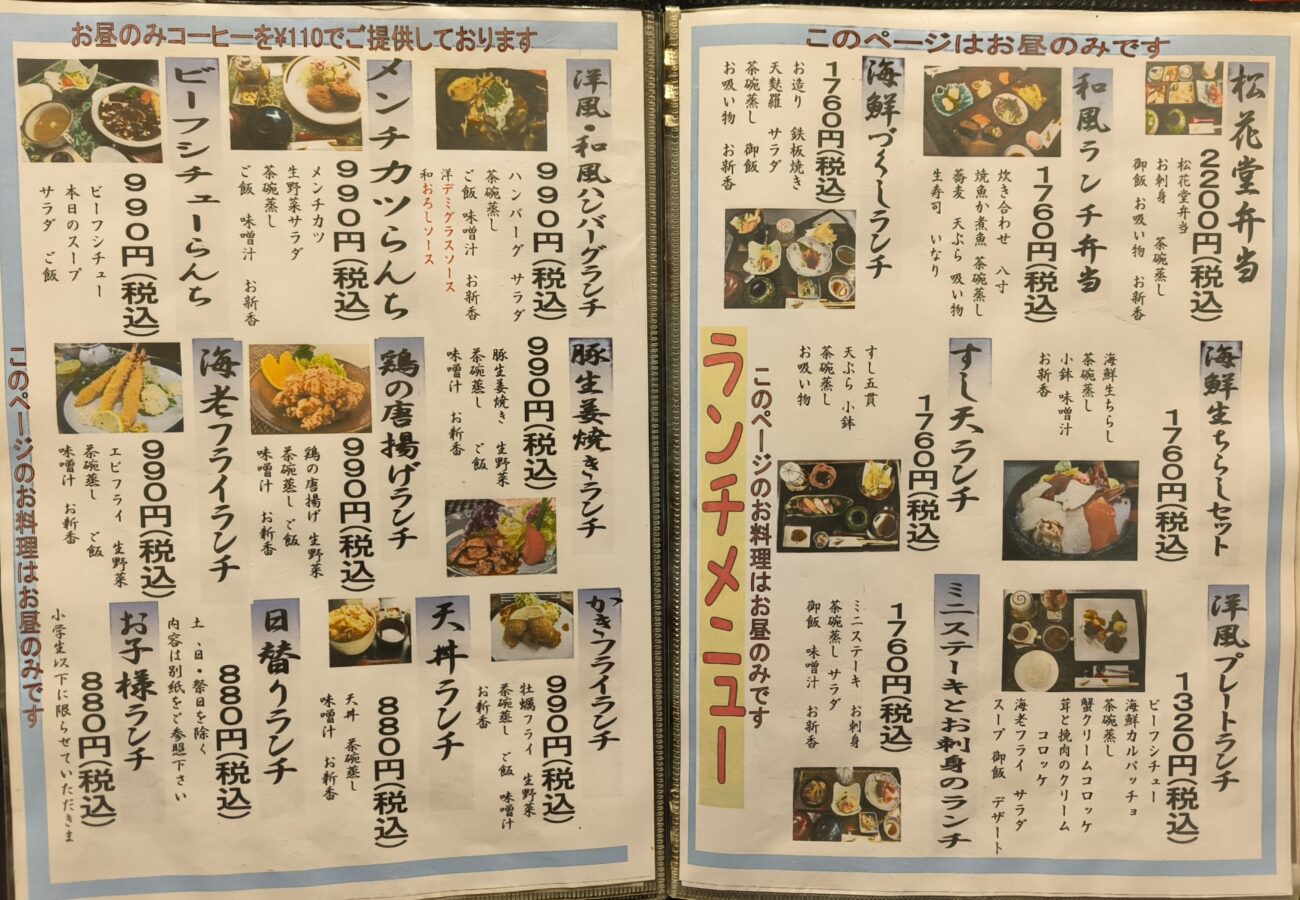 このページはお昼のみです
松花堂弁当
2200円(税込)
松花堂弁当
お刺身　茶碗蒸し
御飯 お吸い物　お新香
和風ランチ弁当
1760円(税込)
炊き合わせ　八寸
焼魚か煮魚 茶碗蒸し
蕎麦　天ぷら 吸い物
生寿司　いなり
海鮮づくしランチ
1760円(税込)
お造り　鉄板焼き
天麩羅　サラダ
茶碗蒸し　御飯
お吸い物　お新香
海鮮生ちらしセット
1760円(税込)
海鮮生ちらし
茶碗蒸し
小鉢 味噌汁
お新香
すし天ランチ
1760円(税込)
すし五貫
天ぷら 小鉢
茶碗蒸し
お吸い物
洋風プレートランチ
1320円(税込)
ビーフシチュー
海鮮カルパッチョ
茶碗蒸し
蟹クリームコロッケ
茸と挽肉のクリーム
コロッケ
海老フライ　サラダ
スープ　御飯　デザート
ミニステーキとお刺身のランチ
1760円(税込)
ミニステーキ　お刺身
茶碗蒸し サラダ
御飯　味噌汁　お新香
このページのお料理はお昼のみです
ランチメニュー
お昼のみコーヒーを¥110でご提供しております
洋風・和風ハンバーグランチ
990円(税込)
ハンバーグ　サラダ
茶碗蒸し
ご飯　味噌汁　お新香
洋デミグラスソース
和おろしソース
メンチカツらんち
990円(税込)
メンチカツ
生野菜サラダ
茶碗蒸し
ご飯　味噌汁　お新香
ビーフシチューらんち
990円(税込)
ビーフシチュー
本日のスープ
サラダ　ご飯
豚生姜焼きランチ
990円(税込)
豚生姜焼き　生野菜
茶碗蒸し　ご飯
味噌汁　お新香
鶏の唐揚げランチ
990円(税込)
鶏の唐揚げ　生野菜
茶碗蒸し ご飯
味噌汁　お新香
海老フライランチ
990円(税込)
エビフライ　生野菜
茶碗蒸し　ご飯
味噌汁　お新香
かきフライランチ
990円(税込)
牡蠣フライ　生野菜
茶碗蒸し　ご飯　味噌汁
お新香
天丼ランチ
880円(税込)
天丼　茶碗蒸し
味噌汁　お新香
日替りランチ
880円(税込)
土、日・祭日を除く
内容は別紙をご参照下さい
お子様ランチ
880円(税込)
小学生以下に限らせていただきま
このページのお料理はお昼のみです